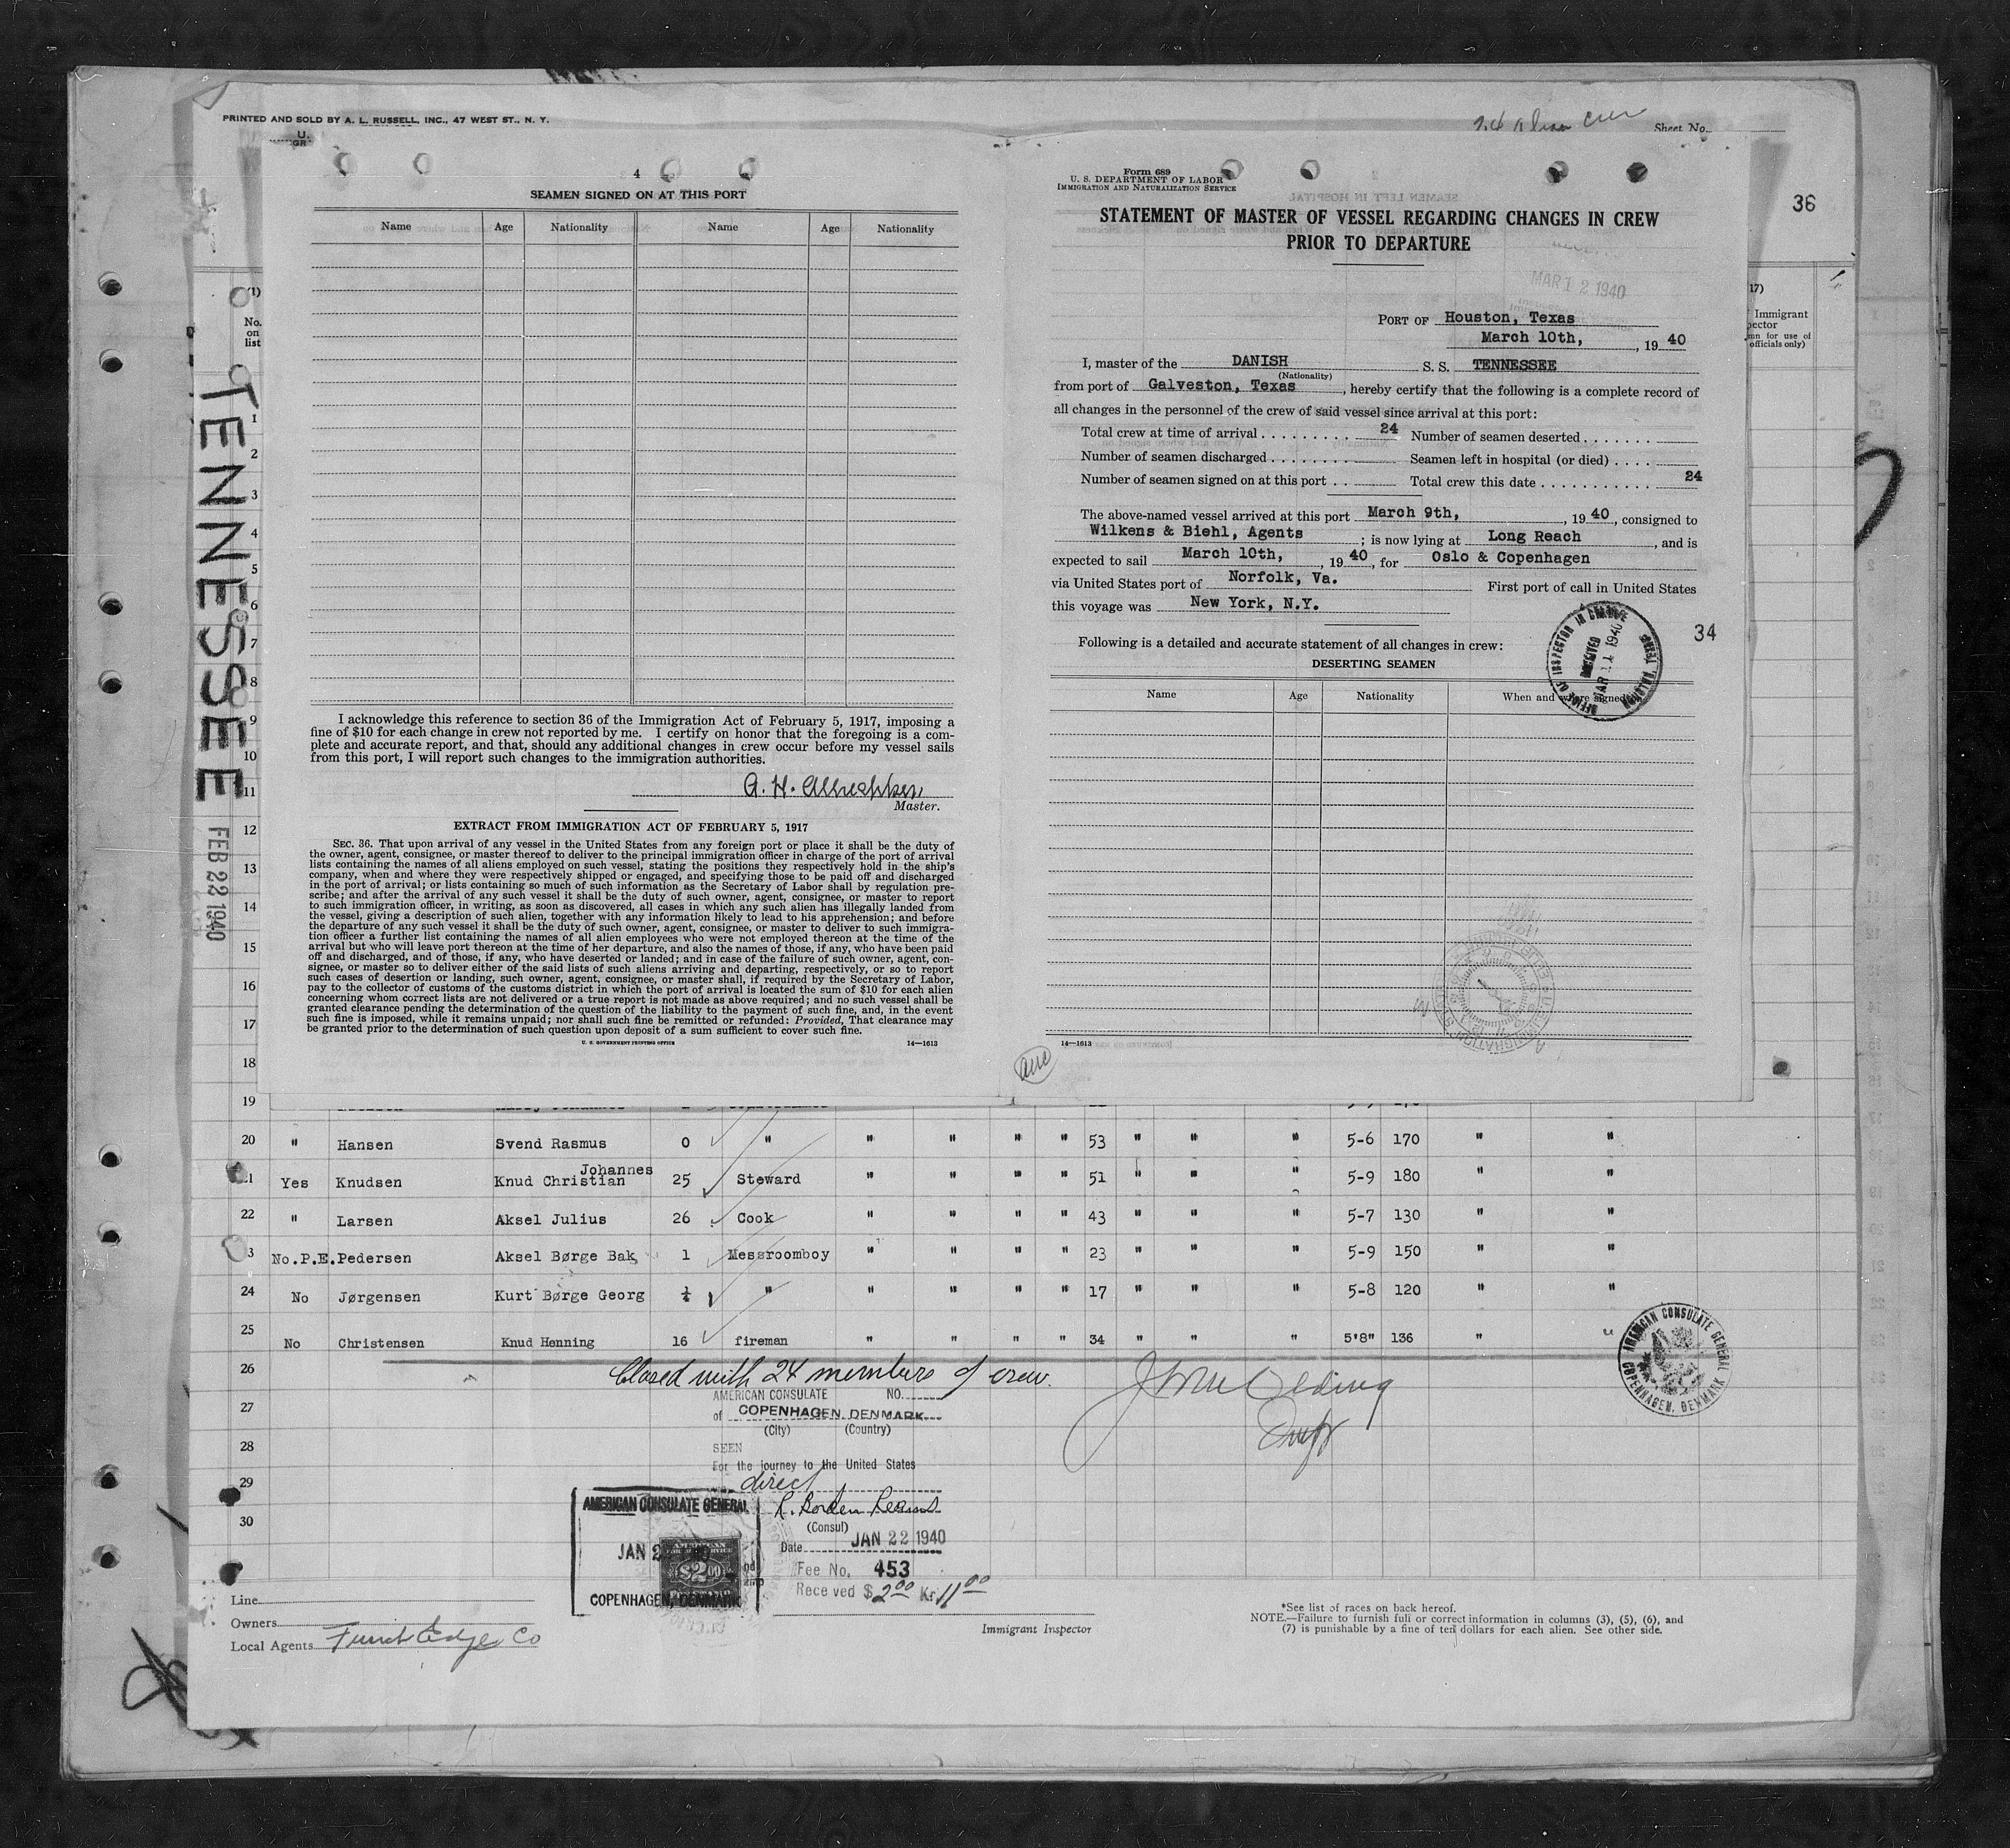 PRINTED AND SOLD BY A. L. RUSSELL, INC., 47 WEST ST., N. Y.
Sheet No.
36
TENNESSEE
FEB 22 1940
4
SEAMEN SIGNED ON AT THIS PORT
Name Age Nationality Name Age Nationality
I acknowledge this reference to section 36 of the Immigration Act of February 5, 1917, imposing a
fine of $10 for each change in crew not reported by me. I certify on honor that the foregoing is a com-
plete and accurate report, and that, should any additional changes in crew occur before my vessel sails
from this port, I will report such changes to the immigration authorities.
Master.
EXTRACT FROM IMMIGRATION ACT OF FEBRUARY 5, 1917
SEC. 36. That upon arrival of any vessel in the United States from any foreign port or place it shall be the duty of
the owner, agent, consignee, or master thereof to deliver to the principal immigration officer in charge of the port of arrival
lists containing the names of all aliens employed on such vessel, stating the positions they respectively hold in the ship's
company, when and where they were respectively shipped or engaged, and specifying those to be paid off and discharged
in the port of arrival; or lists containing so much of such information as the Secretary of Labor shall by regulation pre-
scribe; and after the arrival of any such vessel it shall be the duty of such owner, agent, consignee, or master to report
to such immigration officer, in writing, as soon as discovered, all cases in which any such alien has illegally landed from
the vessel, giving a description of such alien, together with any information likely to lead to his apprehension; and before
the departure of any such vessel it shall be the duty of such owner, agent, consignee, or master to deliver to such immigra-
tion officer a further list containing the names of all alien employees who were not employed thereon at the time of the
arrival but who will leave port thereon at the time of her departure, and also the names of those, if any, who have been paid
off and discharged, and of those, if any, who have deserted or landed; and in case of the failure of such owner, agent, con-
signee, or master so to deliver either of the said lists of such aliens arriving and departing, respectively, or so to report
such cases of desertion or landing, such owner, agent, consignee, or master shall, if required by the Secretary of Labor,
pay to the collector of customs of the customs district in which the port of arrival is located the sum of $10 for each alien
concerning whom correct lists are not delivered or a true report is not made as above required; and no such vessel shall be
granted clearance pending the determination of the question of the liability to the payment of such fine, and, in the event
such fine is imposed, while it remains unpaid; nor shall such fine be remitted or refunded: Provided, That clearance may
be granted prior to the determination of such question upon deposit of a sum sufficient to cover such fine.
U. S. GOVERNMENT PRINTING OFFICE 14—1613
Form 689
U. S. DEPARTMENT OF LABOR
IMMIGRATION AND NATURALIZATION SERVICE
STATEMENT OF MASTER OF VESSEL REGARDING CHANGES IN CREW
PRIOR TO DEPARTURE
MAR 12 1940
PORT OF Houston, Texas
March 10th, , 19 40
I, master of the DANISH S. S. TENNESSEE
(Nationality)
from port of Galveston, Texas, hereby certify that the following is a complete record of
all changes in the personnel of the crew of said vessel since arrival at this port:
Total crew at time of arrival 24 Number of seamen deserted
Number of seamen discharged Seamen left in hospital (or died)
Number of seamen signed on at this port Total crew this date 24
The above-named vessel arrived at this port March 9th, , 19 40, consigned to
Wilkens & Biehl, Agents ; is now lying at Long Reach , and is
expected to sail March 10th, , 19 40, for Oslo & Copenhagen
via United States port of Norfolk, Va. First port of call in United States
this voyage was New York, N.Y.
34
OFFICE OF INSPECTOR IN CHARGE
RECEIVED
MAR 11 1940
Following is a detailed and accurate statement of all changes in crew:
DESERTING SEAMEN
Name Age Nationality When and where signed
14—1613
(1)
No. on list
17)
Immigrant
for use of
officials only)
1
2
3
4
5
6
7
8
9
10
11
12
13
14
15
16
17
18
19
20 " Hansen Svend Rasmus 0 " " " " " 53 " " " 5-6 170 " "
21 Yes Knudsen Knud Christian Johannes 25 Steward " " " " 51 " " " 5-9 180 " "
22 " Larsen Aksel Julius 26 Cook " " " " 43 " " " 5-7 130 " "
3 No.P.E. Pedersen Aksel Børge Bak 1 Messroomboy " " " " 23 " " " 5-9 150 " "
24 No Jørgensen Kurt Børge Georg ¼ " " " " " 17 " " " 5-8 120 " "
25 No Christensen Knud Henning 16 fireman " " " " 34 " " " 5'8" 136 " "
26 Closed with 24 members of crew.
27
28
29
30
AMERICAN CONSULATE NO.
of COPENHAGEN, DENMARK
(City) (Country)
SEEN
For the journey to the United States
direct
(Consul)
Date JAN 22 1940
Fee No. 453
Received $2.00 Kr 11.00
AMERICAN CONSULATE GENERAL
COPENHAGEN, DENMARK
AMERICAN
$2.00
AMERICAN CONSULATE GENERAL
COPENHAGEN, DENMARK
Line
Owners
Local Agents Funch Edye Co
Immigrant Inspector
*See list of races on back hereof.
NOTE.—Failure to furnish full or correct information in columns (3), (5), (6), and
(7) is punishable by a fine of ten dollars for each alien. See other side.